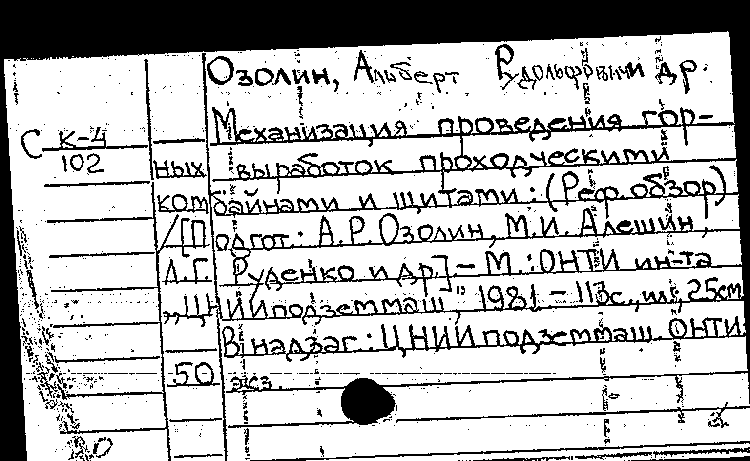 Озолин, Альберт Рудольфович и др.
С К-4
102
Механизация проведения гор-
ных выработок проходческими
комбайнами и щитами: (Реф. обзор)
/[Подгот.: А.Р. Озолин, М.И. Алешин,
Л.Г. Руденко и др.] – М.: ОНТИ ин-та
„ЦНИИподземмаш", 1981 – 113с., ил., 25см.
В надзаг.: ЦНИИподземмаш. ОНТИ.
50 экз.